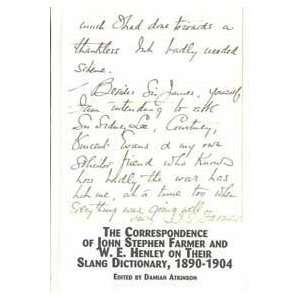 much I had done towards a
thankless but badly needed
scheme.
Besides Sir James, yourself
I am intending to ask
Sir Sidney Lee, Courtney,
Vincent Evans & my own
solicitor friend who knows
how badly, the war has
hit me, at a time too when
everything was going well
THE CORRESPONDENCE
OF JOHN STEPHEN FARMER AND
W. E. HENLEY ON THEIR
SLANG DICTIONARY, 1890-1904
EDITED BY DAMIAN ATKINSON